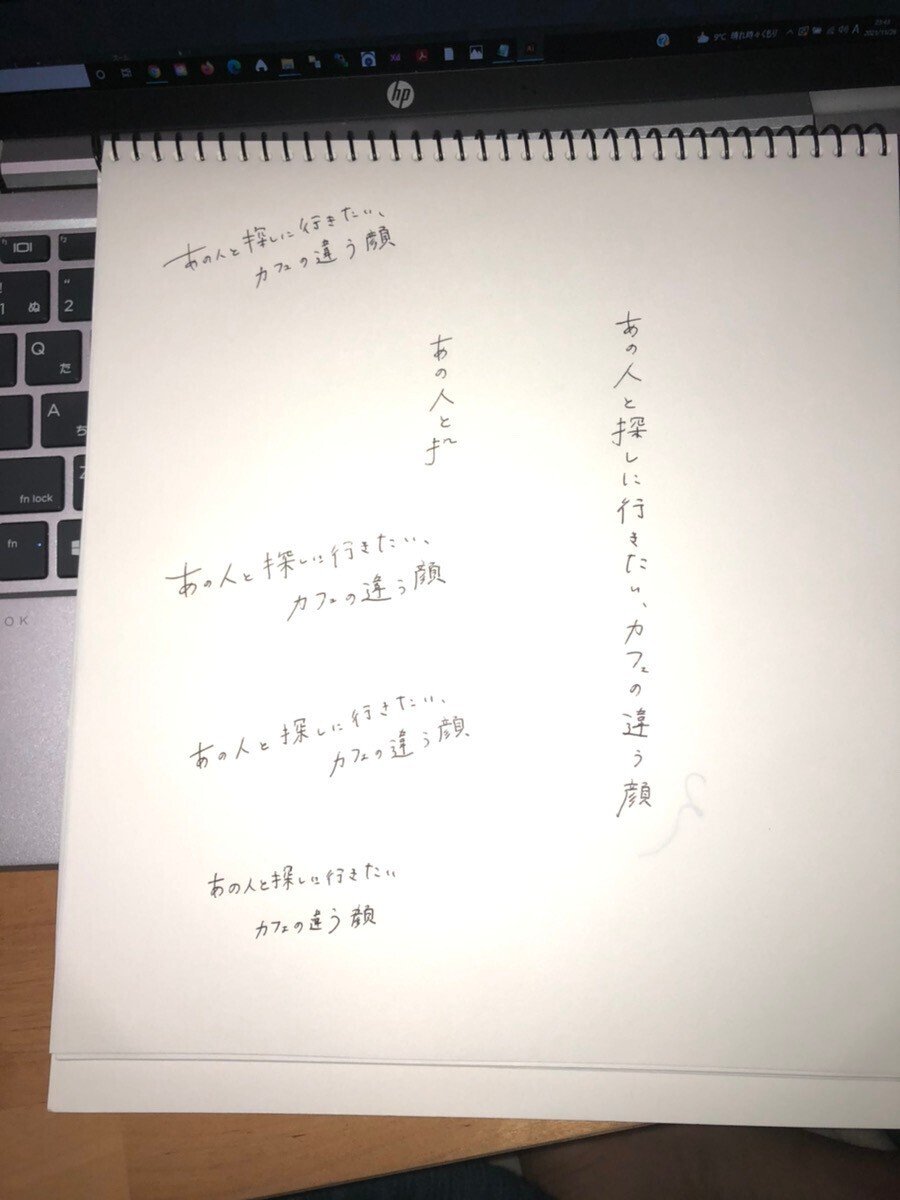 9°C 晴れ時々くもり
A
23:43
2021/11/26
Xd
Ai
hp
あの人と探しに行きたい、
カフェの違う顔
あの人と探しに行きたい、カフェの違う顔
あの人と
あの人と探しに行きたい、
カフェの違う顔
あの人と探しに行きたい、
カフェの違う顔
あの人と探しに行きたい
カフェの違う顔
!
1 ぬ
"
2
Q
た
A
ち
Z
fn lock
fn
OK